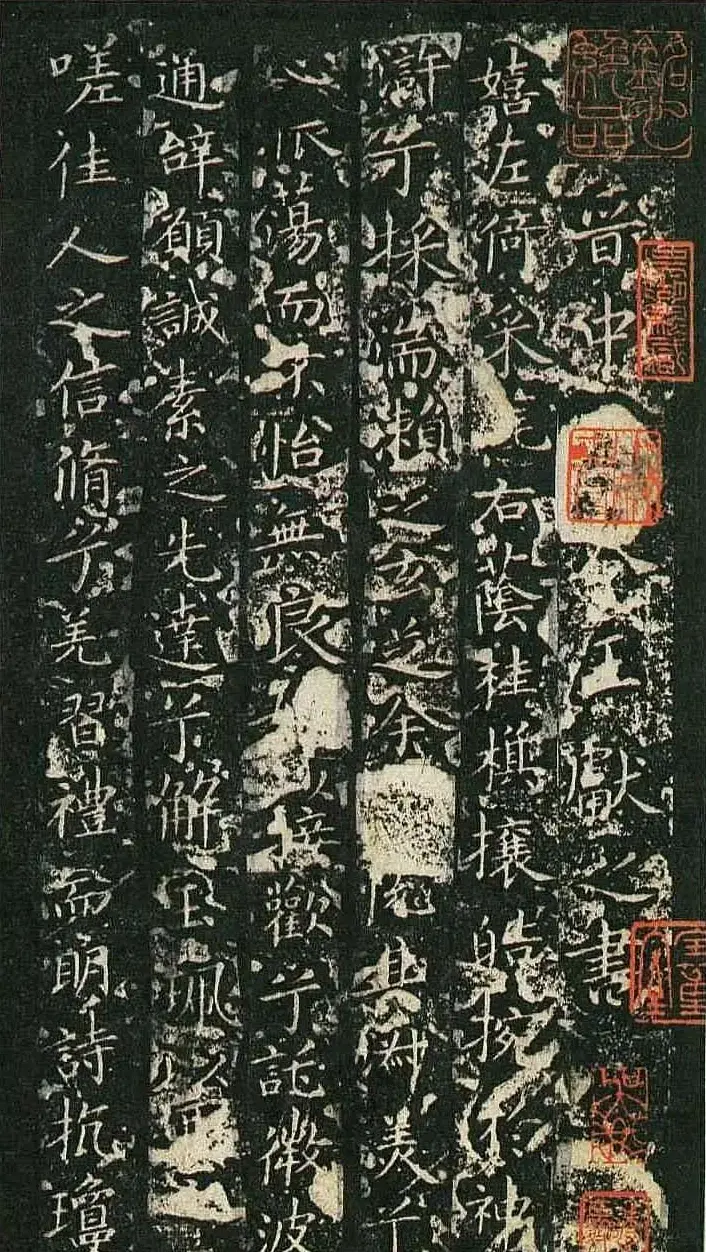 晉中王獻之書
嬉左倚采旄右蔭桂旗攘皓捥於神
滸兮採湍瀨之玄芝余悅其淑美兮
心振蕩而不怡無良以接歡兮託微波
通辭願誠素之先達兮解玉珮以要
嗟佳人之信脩兮羌習禮而明詩抗瓊